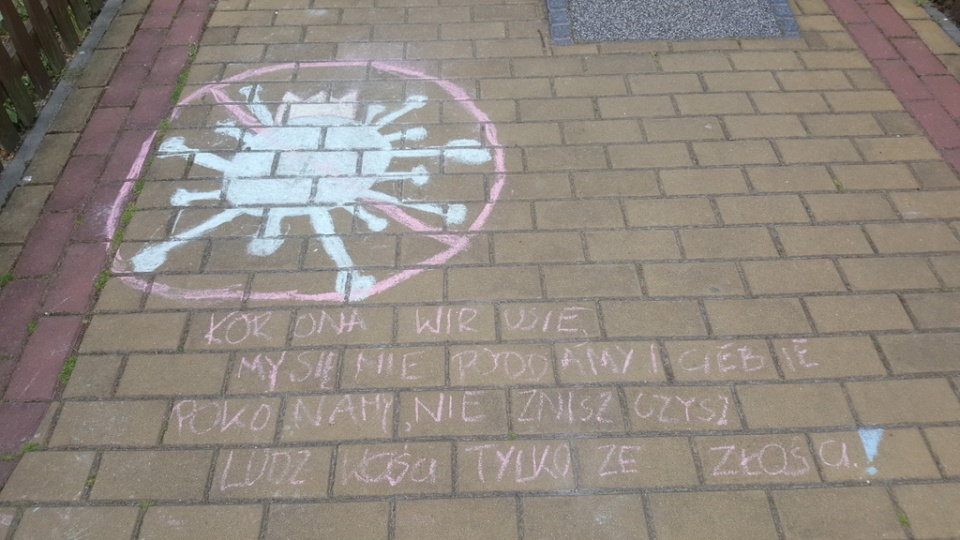 KORONAWIRUSIE,
MY SIĘ NIE PODDAMY I CIEBIE
POKONAMY, NIE ZNISZCZYSZ
LUDZKOŚCI TYLKO ZE ZŁOŚCI!